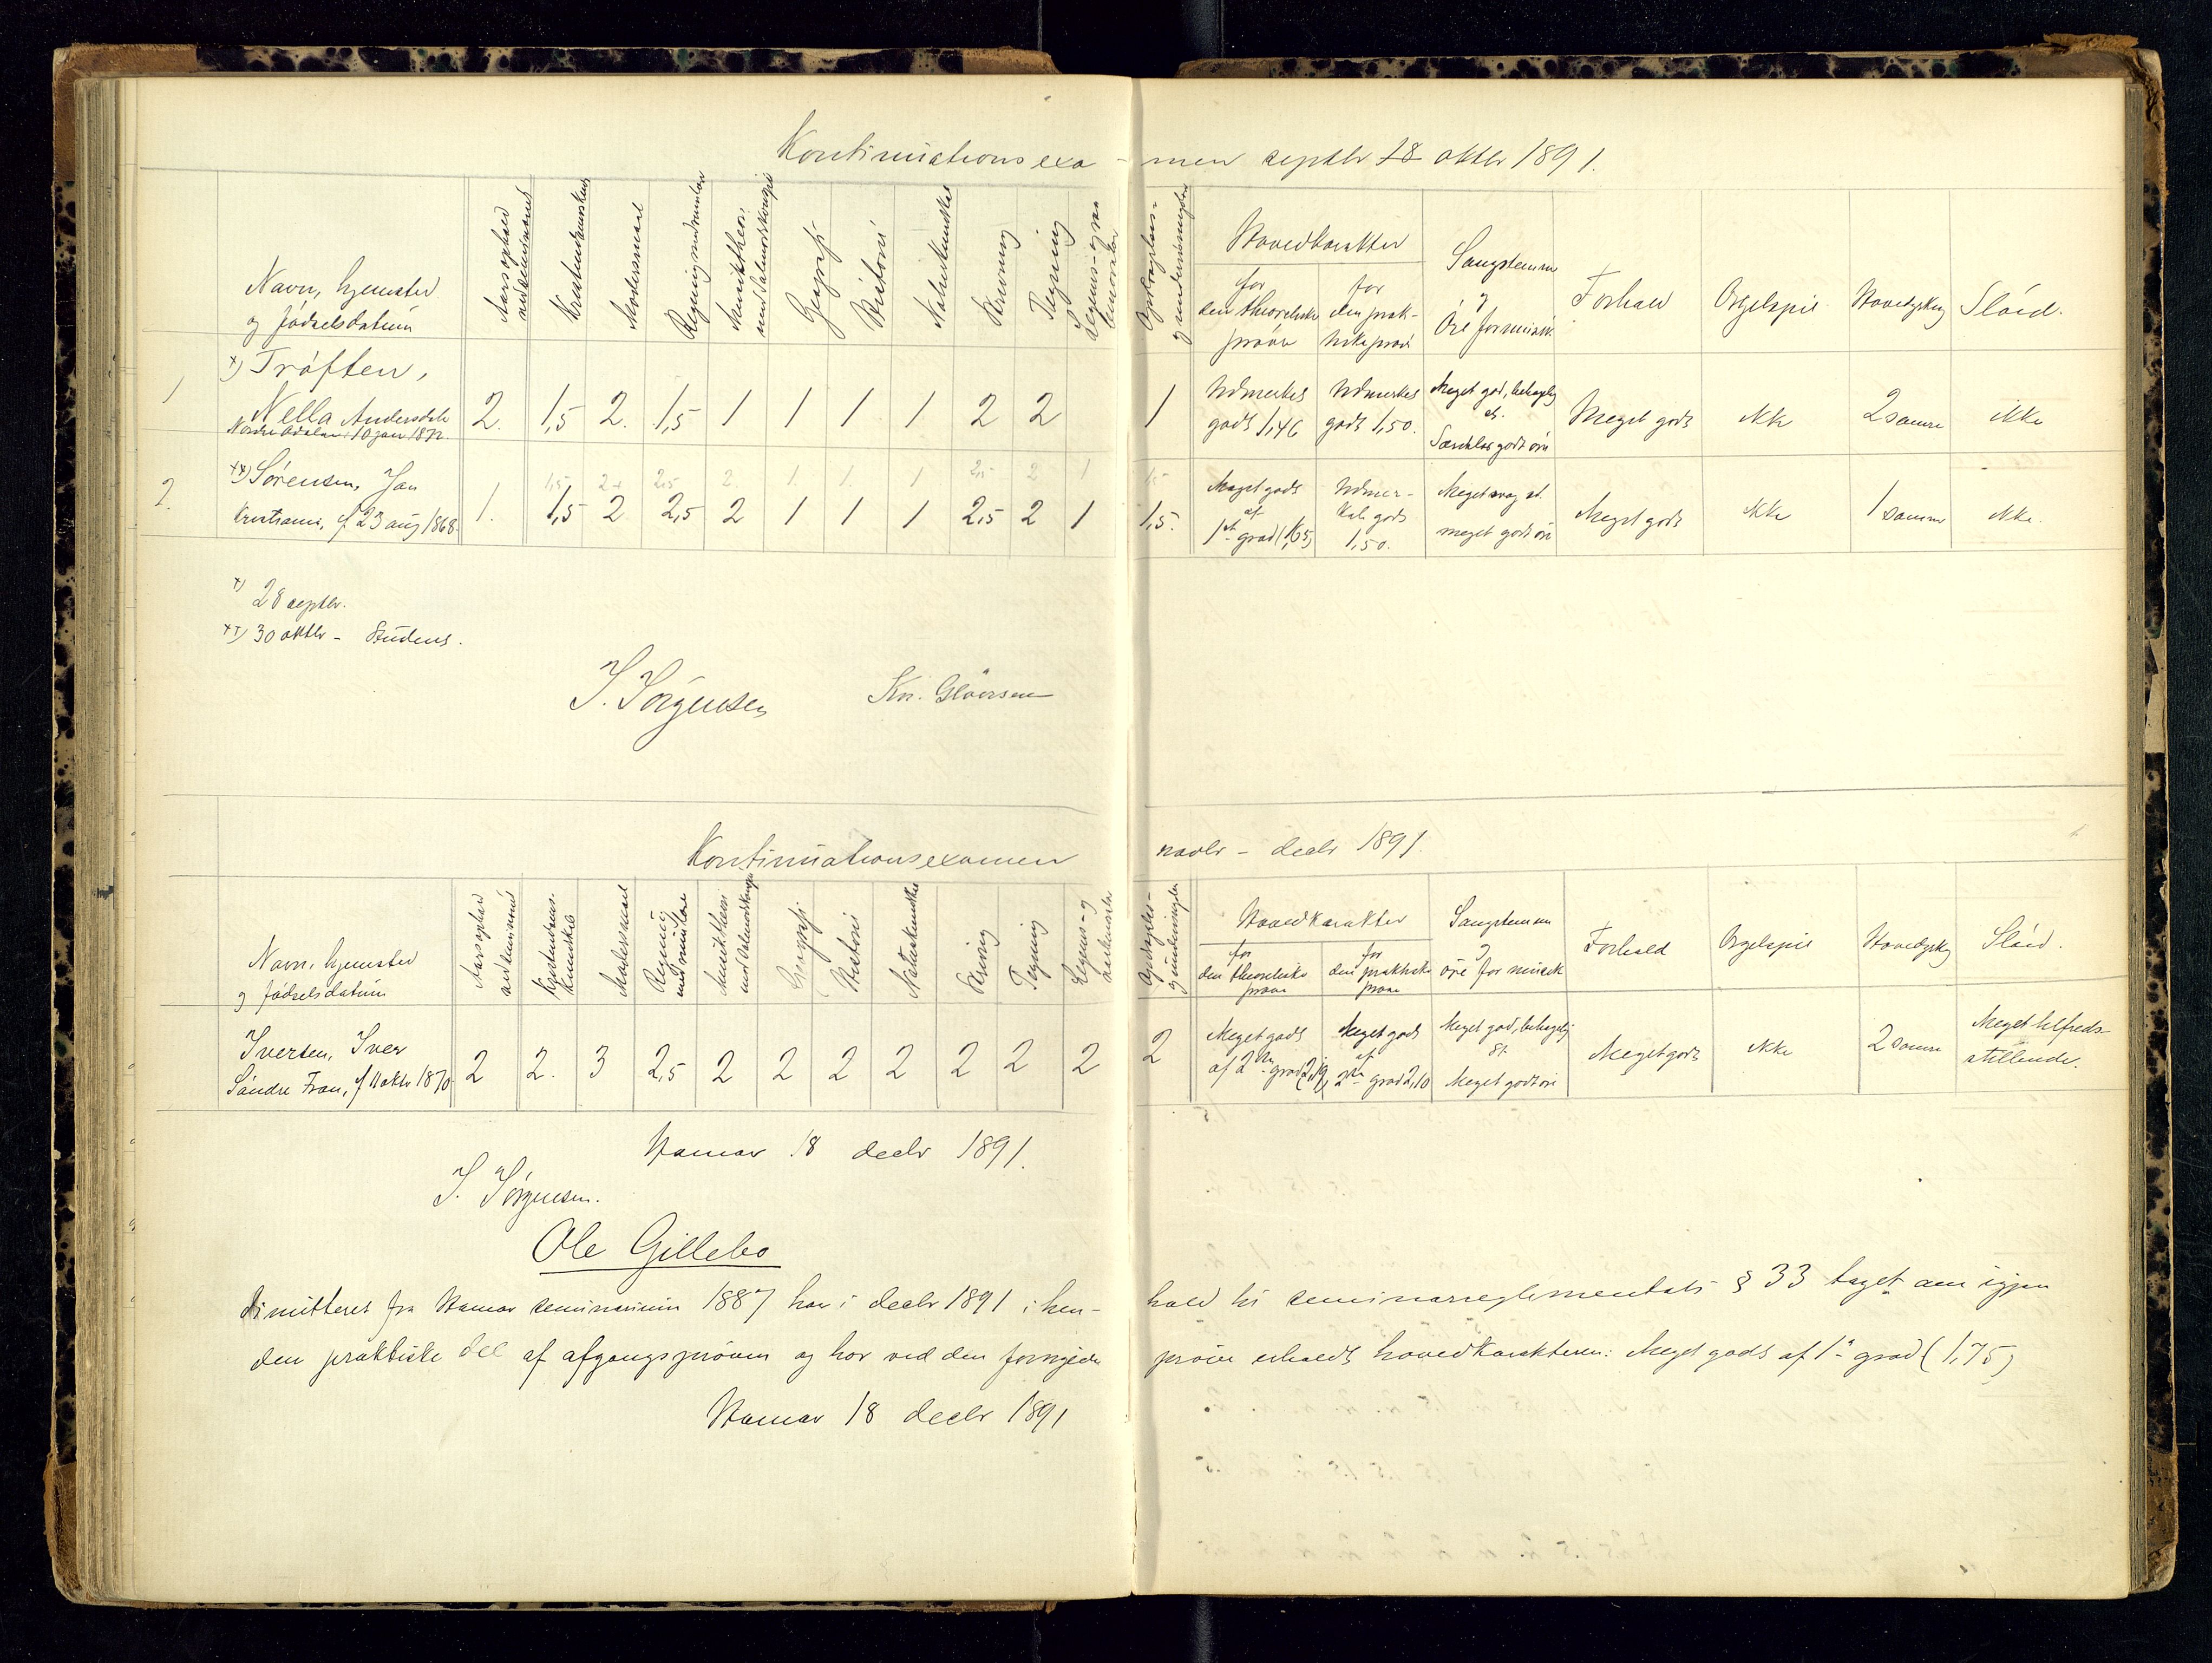 Kontinuationsexa- men septbr &
oktbr 1891.
Navn, hjemsted
og fødselsdatum
Aarsophold
ved seminariet
Kristendomskundskab
Modersmaal
Regning med rumlære
Musiktheori
med Salmodikonspil
Geografi
Historie
Naturkundskab
Skrivning
Tegning
Legems- og vaabenøvelser
Opdragelses- og undervisningslære
Hovedkarakter
for den theoretiske prøve
for den praktiske prøve
Sangstemme
og
Øre for musik
Forhold
Orgelspil
Hovedsprog
Sløid.
1 x) Trøften,
Nella Andersdatr
Nordre Aadalen 10 jan 1872.
2. 1,5 2. 1,5 1 1 1 1 2 2 1
Udmerket godt 1,46
Udmerket godt 1,50.
Meget god, behagelig st.
Særdeles godt øre
Meget godt ikke 2 somre ikke
2. xx) Sørensen, Jan
Kristiania, f 23 aug 1868.
1,5 2 2,5 2. 1. 1. 1 2,5 2 1 1,5
1. 1,5 2 2,5 2 1 1 1 2,5 2 1 1,5.
Meget godt
af
1ste grad (1,65)
Udmer-
ket godt
1,50.
Meget svag st.
meget godt øre
Meget godt ikke 1 sommer ikke.
x) 28 septbr.
xx) 30 oktbr - Student.
S. Sørgensen Kr. Gløersen
Kontinuationsexamen novbr - decbr 1891.
Navn, hjemsted
og fødselsdatum
Aarsophold
ved seminariet
Kristendoms-
kundskab
Modersmaal
Regning
med rumlære
Musiktheori
med Salmodikonspil
Geografi
Historie
Naturkundskab
Skrivning
Tegning
Legems- og
vaabenøvelser
Opdragelses-
og undervisningslære
Hovedkarakter
for
den theoretiske
prøve
for
den praktiske
prøve
Sangstemme
og
øre for musik
Forhold
Orgelspil
Hovedsprog
Sløid.
Iversen, Iver
Søndre Fron, f 11 oktbr 1870
2 2. 3 2,5 2 2 2 2 2 2 2 2
Meget godt
af 2den grad (2,19)
Meget godt
af
2den grad 2,10
Meget god, behagelig
st.
Meget godt øre
Meget godt ikke 2 somre
Meget tilfreds-
stillende.
Hamar 18 decbr 1891.
S. Sørgensen.
Ole Gillebo
dimitteret fra Hamar seminarium 1887 har i decbr 1891 i hen- hold til seminarreglementets § 33 taget om igjen
den praktiske del af afgangsprøven og har ved den fornyede prøve erholdt hovedkarakteren: Meget godt af 1ste grad (1,75)
Hamar 18 decbr 1891